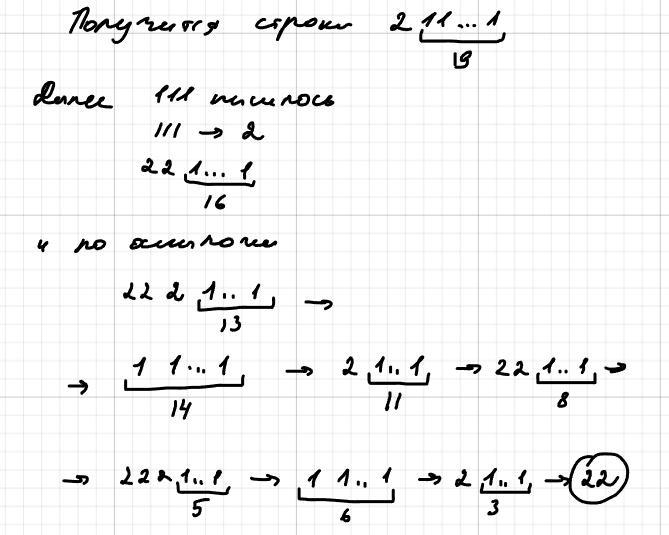 Получится строка 2 11...1
19
Далее 111 нашлось
111 → 2
22 1...1
16
и по аналогии
22 2 1..1 →
13
→ 1 1...1 → 2 1..1 → 22 1..1 →
14 11 8
→ 222 1..1 → 1 1..1 → 2 1..1 → 22
5 6 3